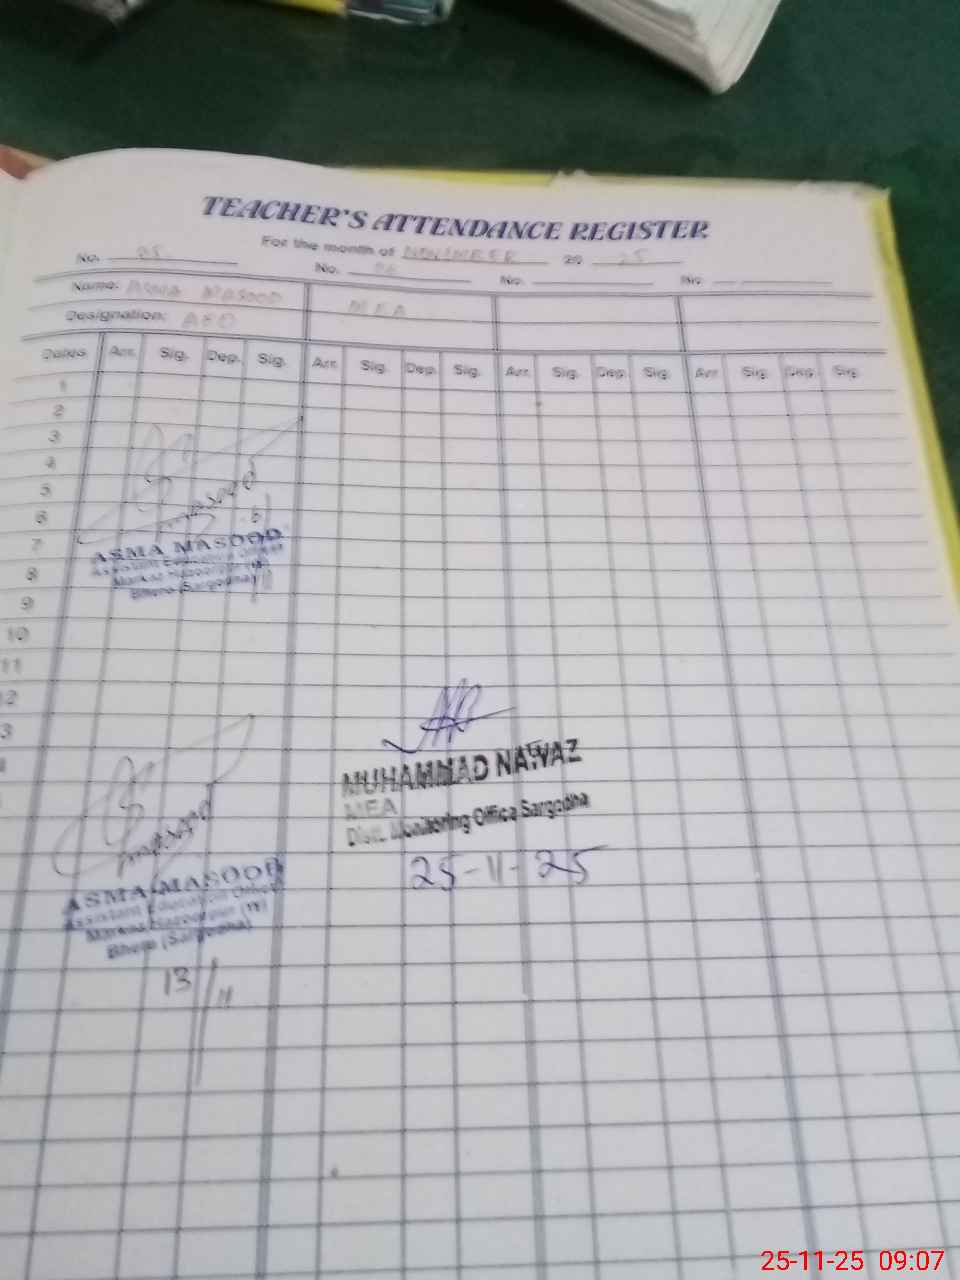 TEACHER'S ATTENDANCE REGISTER
For the month of NOVEMBER 20 25
No. 05 No. 06 No. No.
Name: ASMA MASOOD MEA
Designation: AEO
Dates Arr. Sig. Dep. Sig. Arr. Sig. Dep. Sig. Arr. Sig. Dep. Sig. Arr. Sig. Dep. Sig.
1
2
3
4
5
6
7
8
9
10
11
12
3
Masood
ASMA MASOOD
Assistant Education Officer
Markaz
Bhera (Sargodha)
MUHAMMAD NAWAZ
MEA
Distt. Monitoring Office Sargodha
25-11-25
Masood
ASMA MASOOD
Assistant Education Officer
Markaz
Bhera (Sargodha)
13/11
25-11-25 09:07